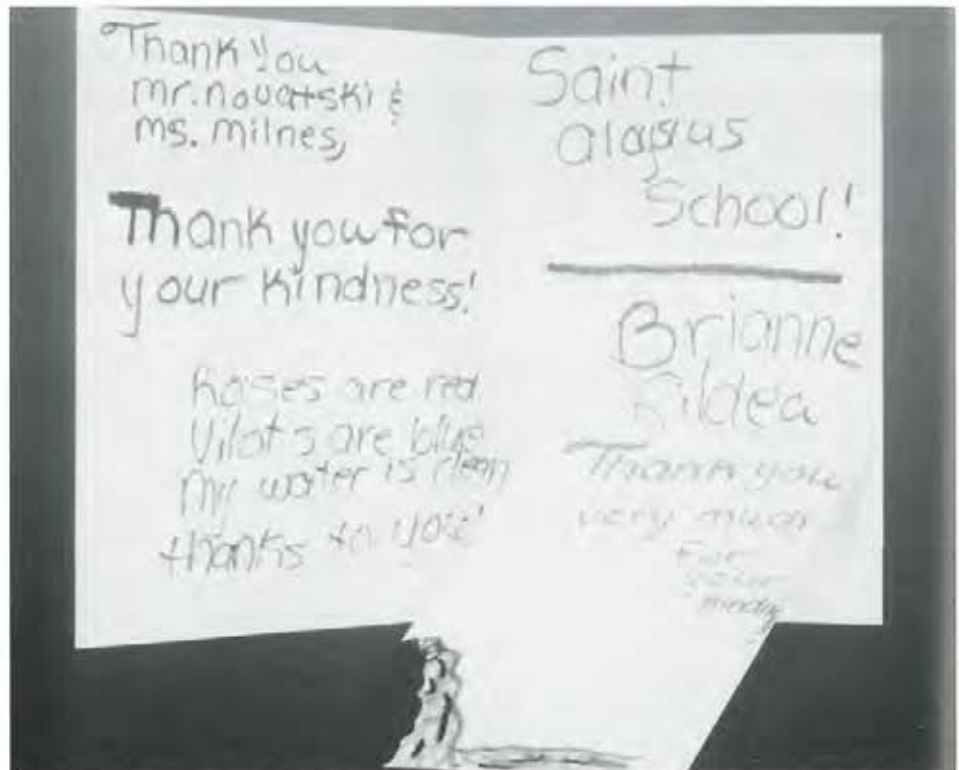 Thank you
mr. novatski &
ms. milnes,
Thank you for
your kindness!
Roses are red
Vilots are blue
my water is clean
thanks to you!
Saint
alaysius
School!
Brianne
Kildea
Thank you
very much
For
your